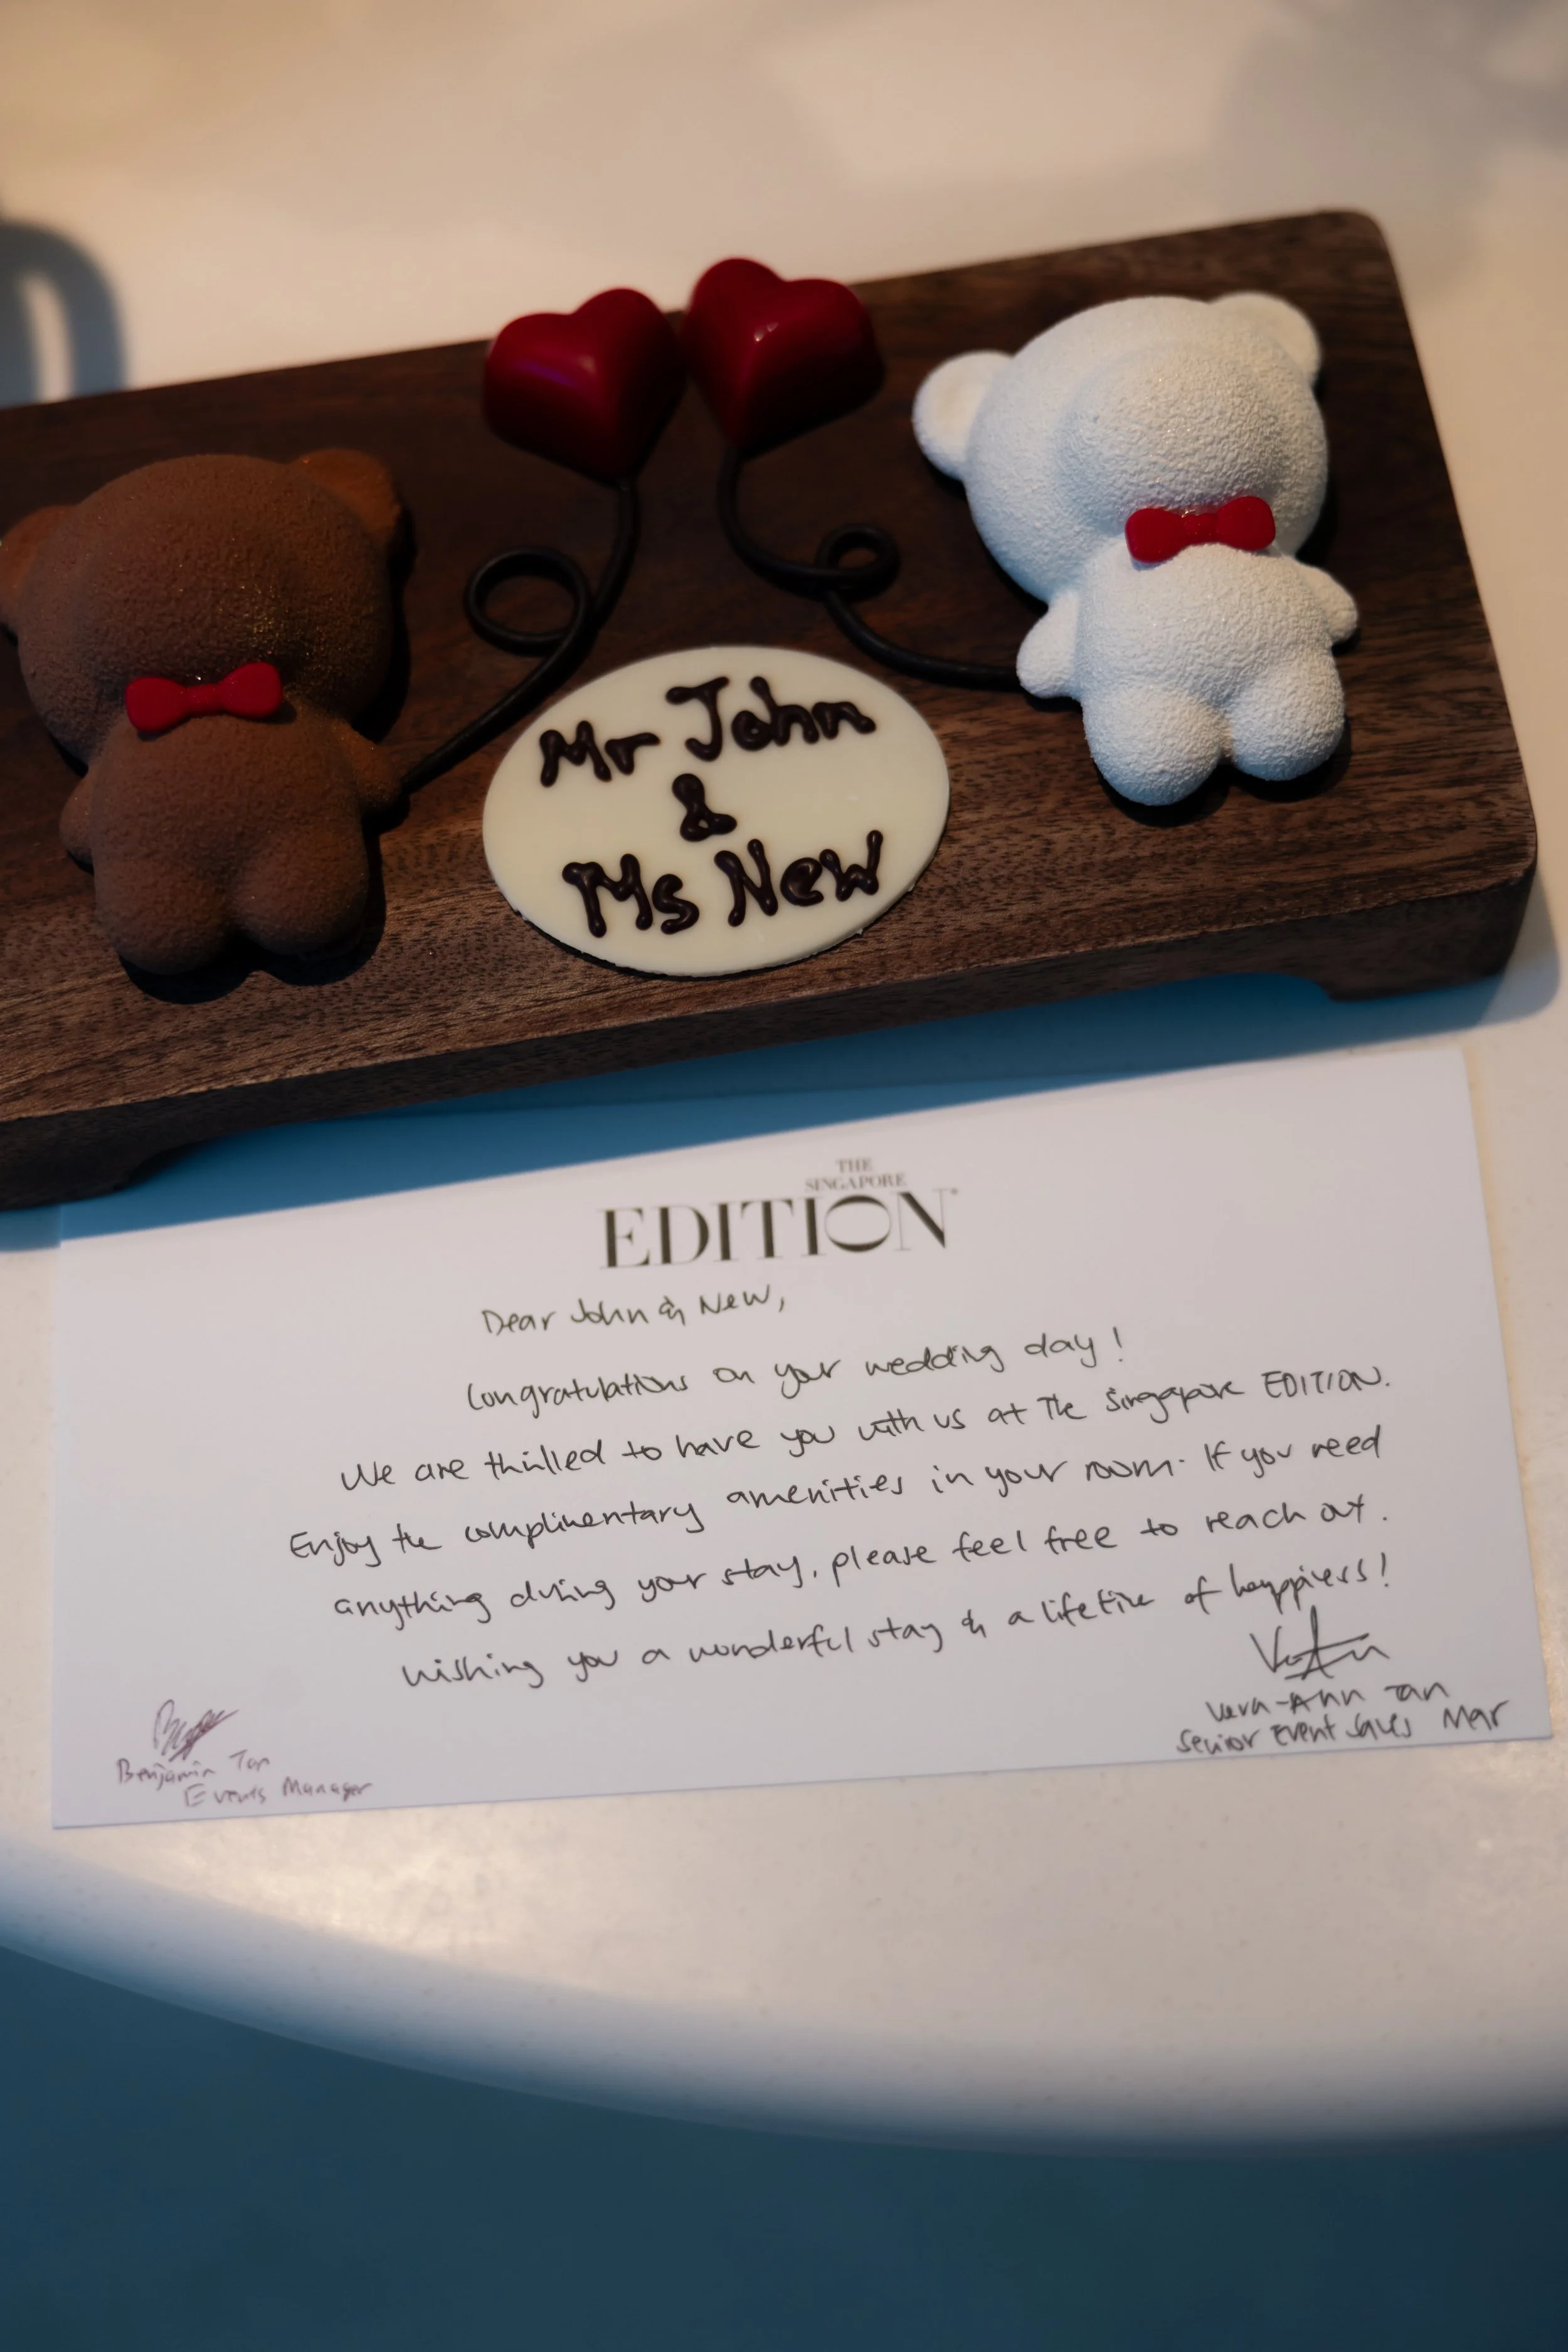 Mr John
&
Ms New
THE
SINGAPORE
EDITION
Dear John & New,
Congratulations on your wedding day!
We are thrilled to have you with us at The Singapore EDITION.
Enjoy the complimentary amenities in your room. If you need
anything during your stay, please feel free to reach out.
Wishing you a wonderful stay & a lifetime of happiness!
Vera-Ann Tan
Senior Event Sales Mgr
Benjamin Tan
Events Manager